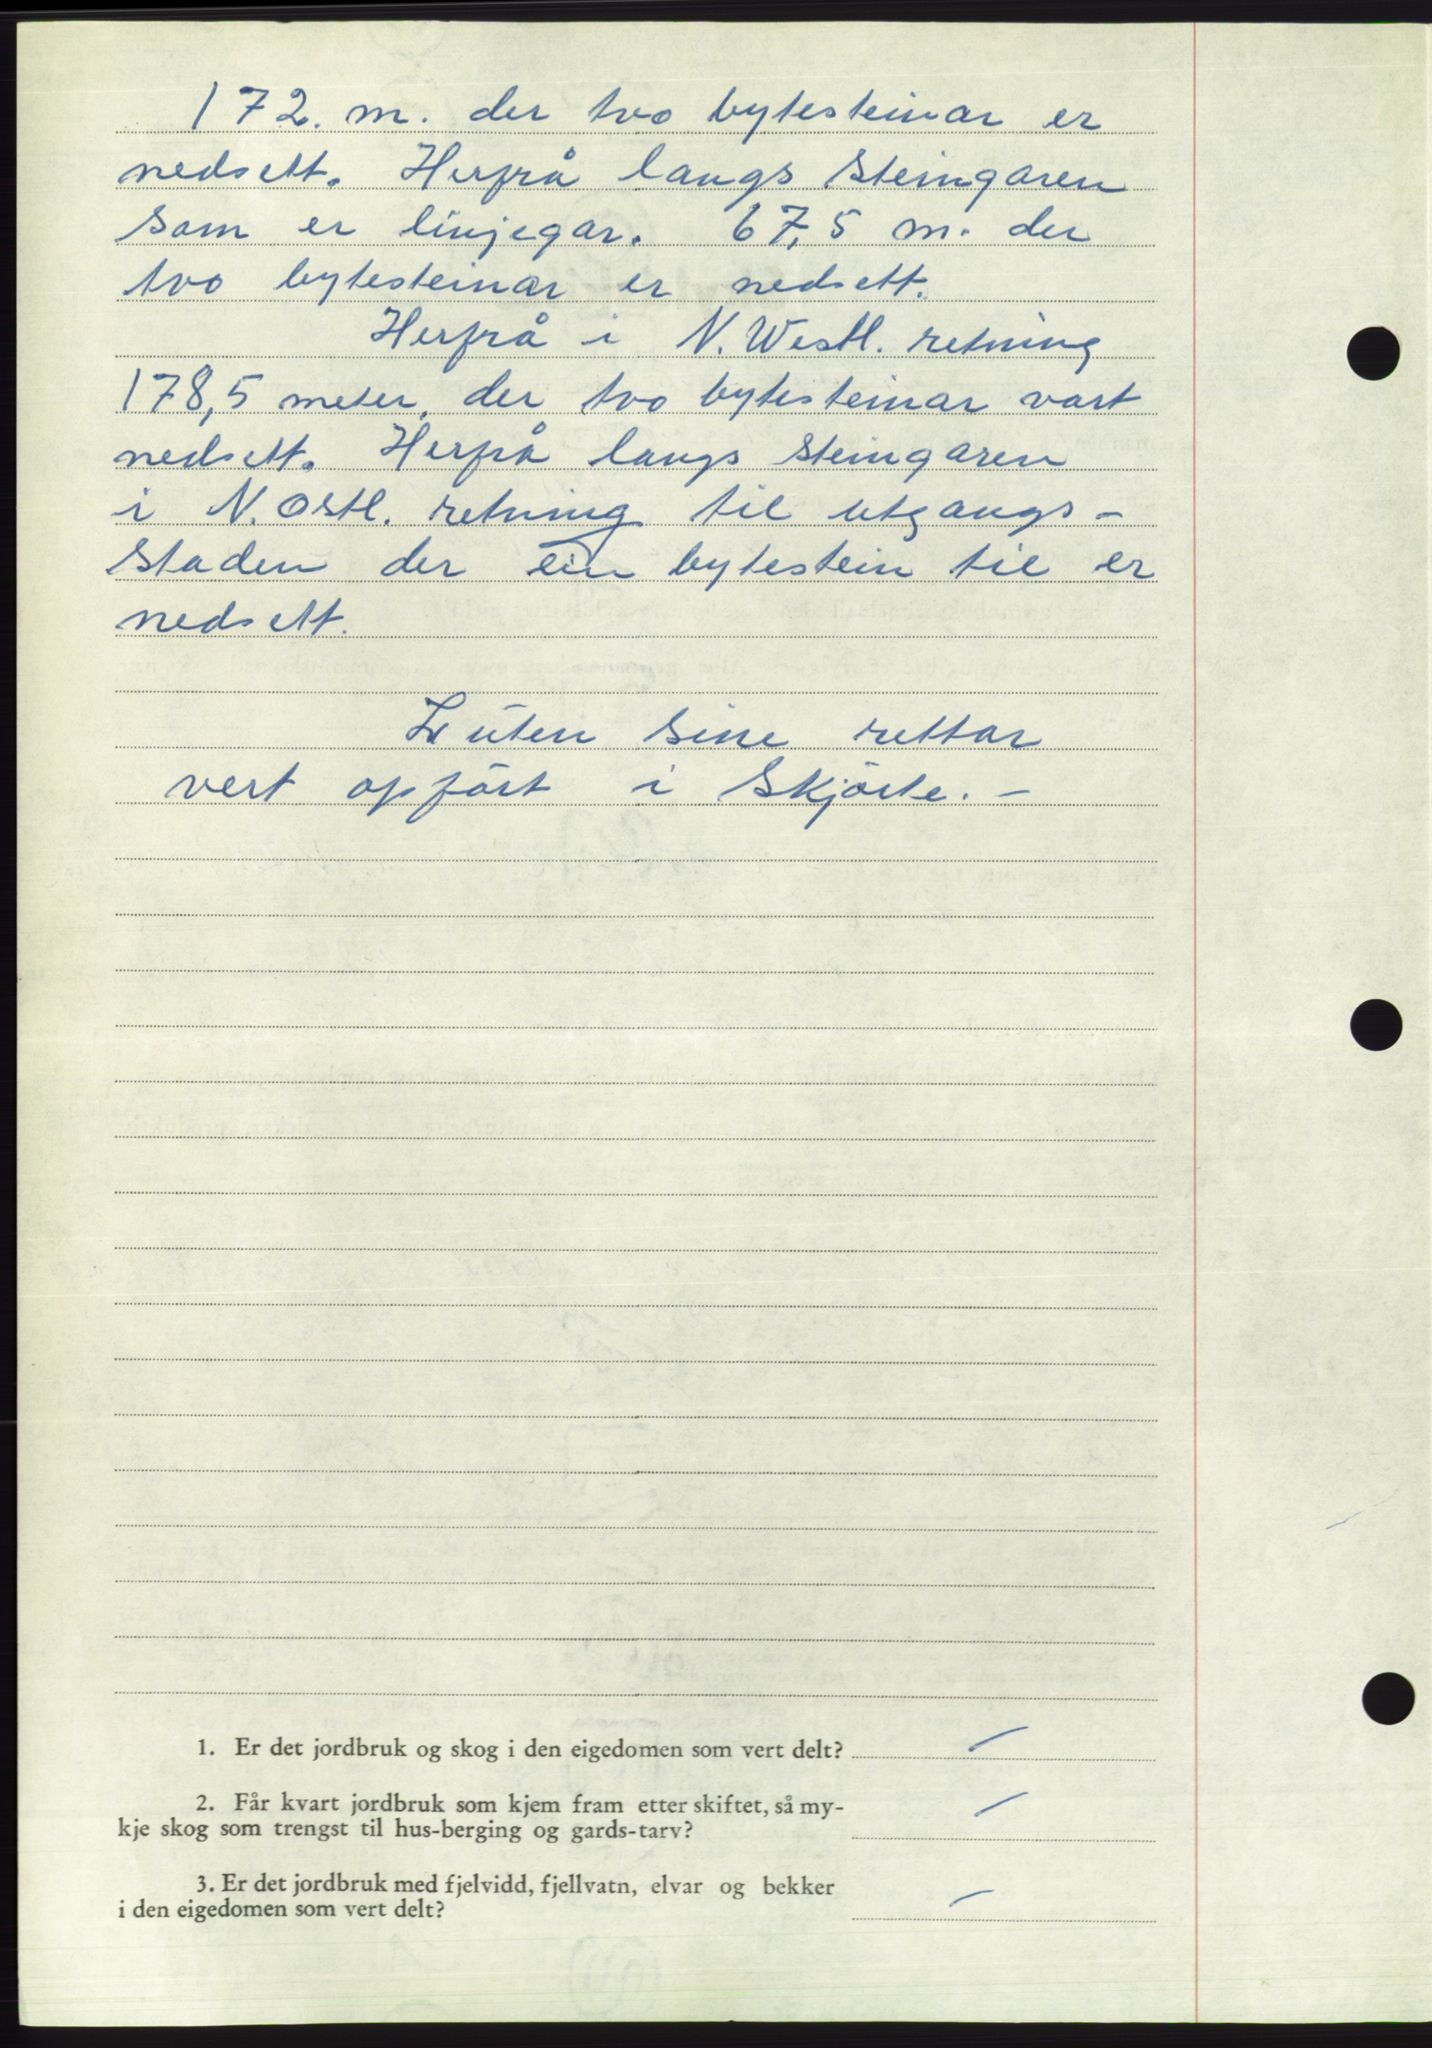 172. m. der tvo bytesteinar er
nedsett. Herfrå langs steingaren
som er linjegar. 67,5 m. der
tvo bytesteinar er nedsett.
Herfrå i N. Westl. retning
178,5 meter, der tvo bytesteinar vart
nedsett. Herfrå langs steingaren
i N. ostl. retning til utgangs-
staden der ein bytestein til er
nedsett.
Luten sine rettar
vert opfört i Skjöte. -
1. Er det jordbruk og skog i den eigedomen som vert delt?
2. Får kvart jordbruk som kjem fram etter skiftet, så my-
kje skog som trengst til hus-berging og gards-tarv?
3. Er det jordbruk med fjelvidd, fjellvatn, elvar og bekker
i den eigedomen som vert delt?